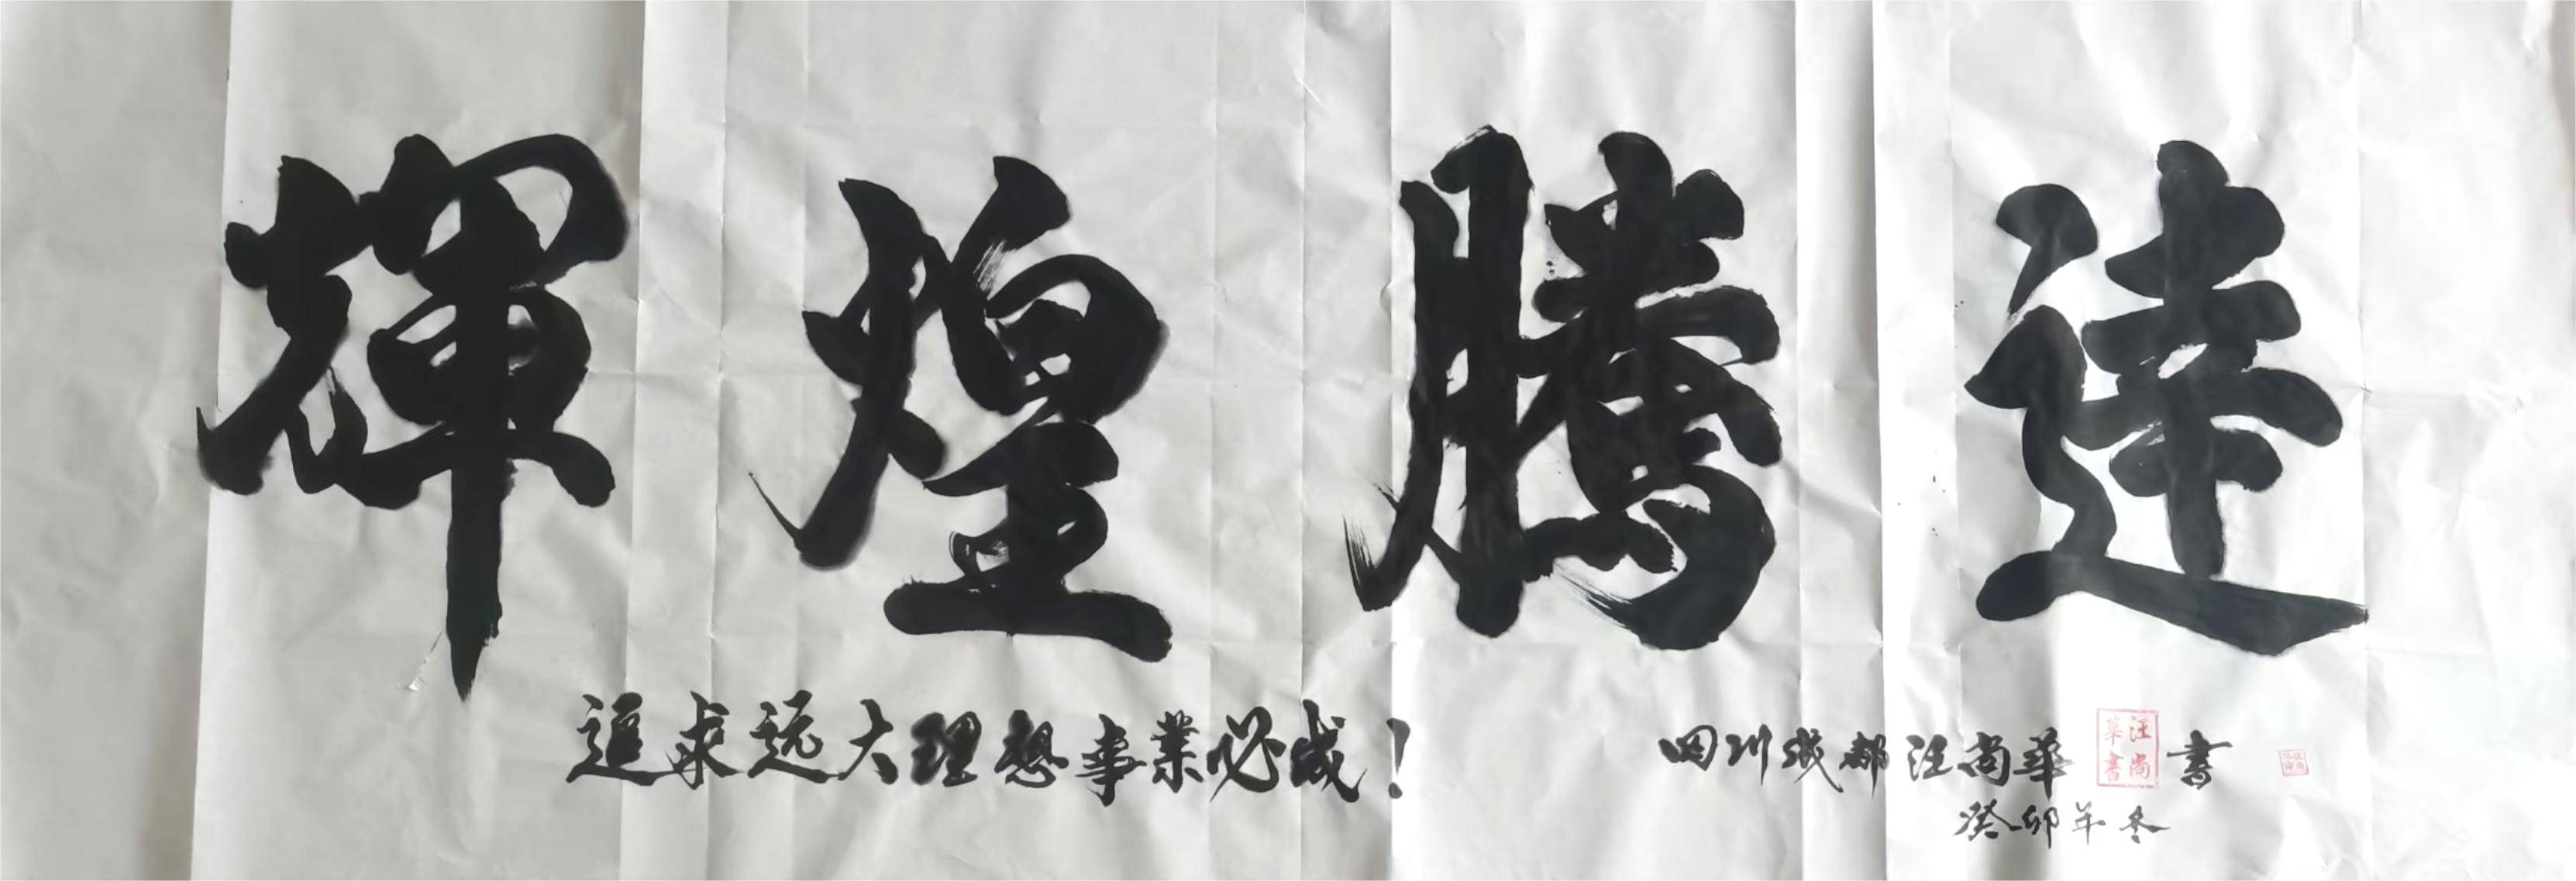 輝煌騰達
追求远大理想事業必成!
四川成都汪尚華 書
汪尚華書
癸卯年冬